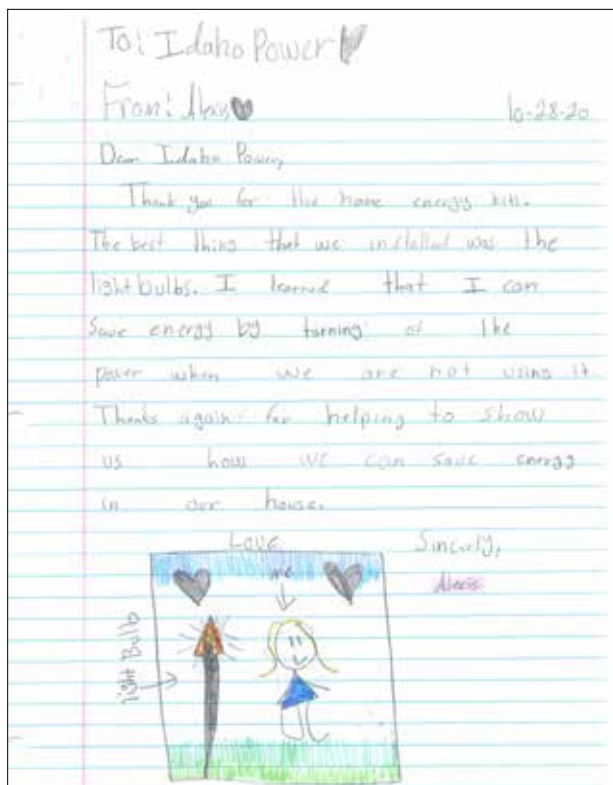 To: Idaho Power
From: Alexis
10-28-20
Dear Idaho Power,
Thank you for the home energy kits.
The best thing that we installed was the
lightbulbs. I learned that I can
Save energy by turning of the
power when we are not using it
Thanks again for helping to show
us how we can save energy
in our house.
Love
Sincerly,
me
Alexis
light Bulb